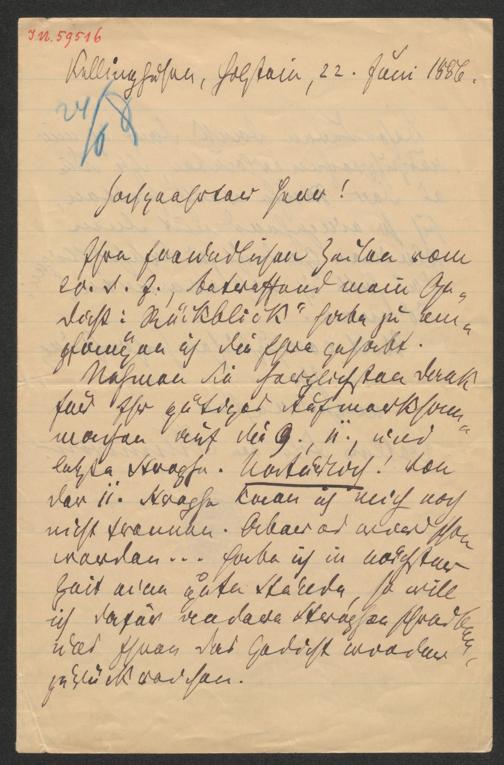 I.N. 59516
Kellinghusen, Holstein, 22. Juni 1886.
24/6 8
Hochgeehrter Herr!
Ihre freundlichen Zeilen vom
20. d. J., betreffend mein Ge„
dicht: „Rückblick“ habe zu em„
pfangen ich die Ehre gehabt.
Nehmen Sie herzlichsten Dank
für Ihr gütiges Aufmerksam„
machen auf die 9., 11., und
letzte Strophe. Natürlich! Von
der 11. Strophe kann ich mich noch
nicht trennen. Aber es wird schon
werden... Habe ich in nächster
Zeit eine gute Stunde, so will
ich dafür andere Strophen schreiben,
und Ihnen das Gedicht wieder
zurückreichen.